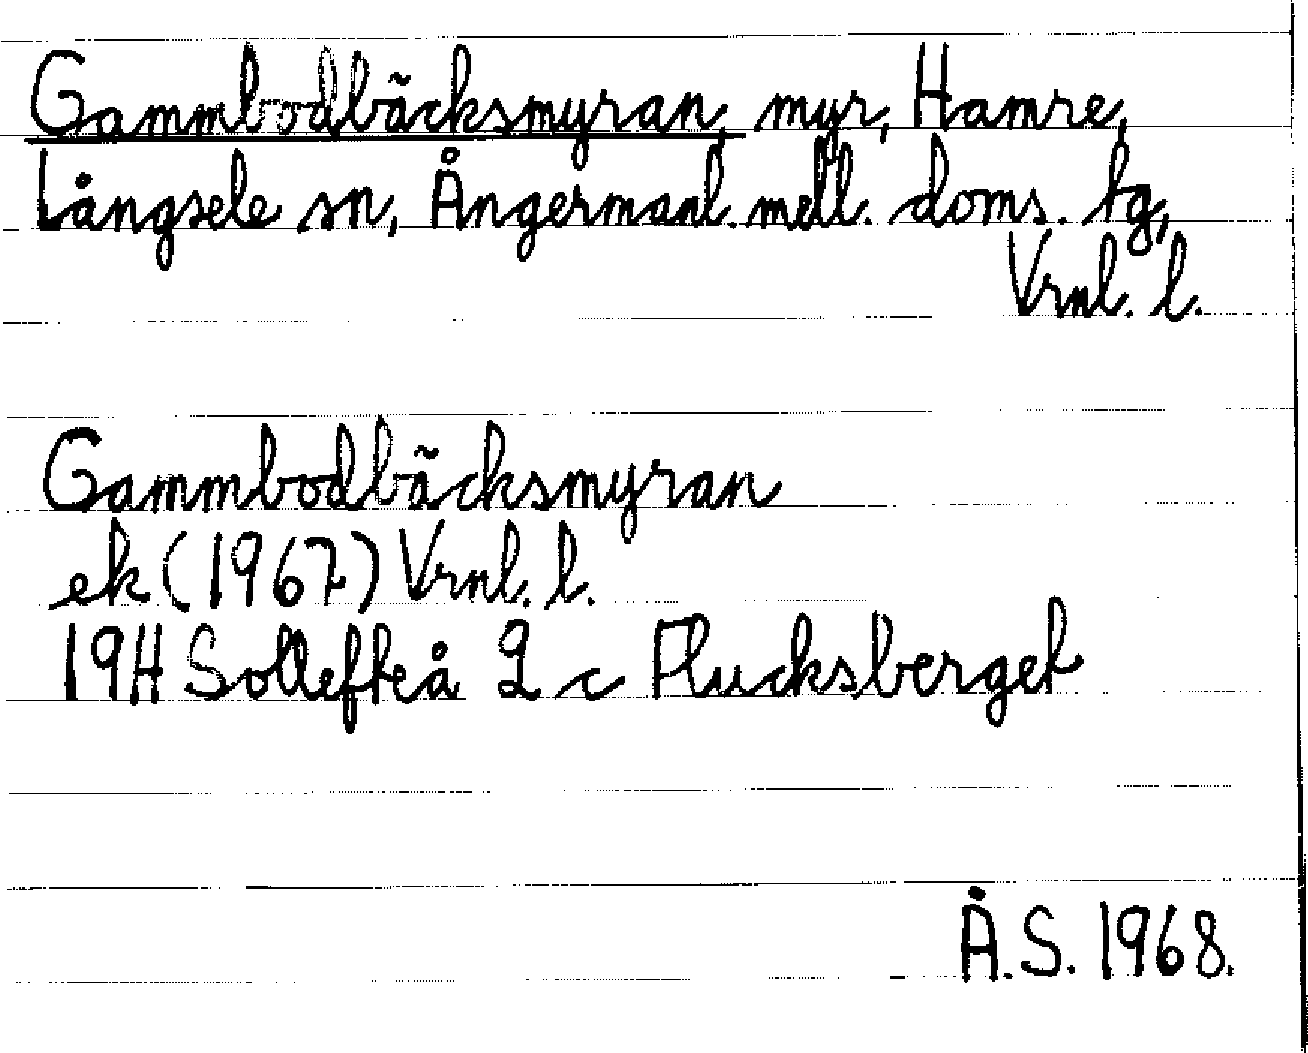 Gammbodbäcksmyran, myr, Hamre,
Långsele sn, Ångermanl. mell. doms. tg,
Vrnl. l.
Gammbodbäcksmyran
ek (1967) Vrnl. l.
19H Sollefteå 2 c Flucksberget
Å.S. 1968.